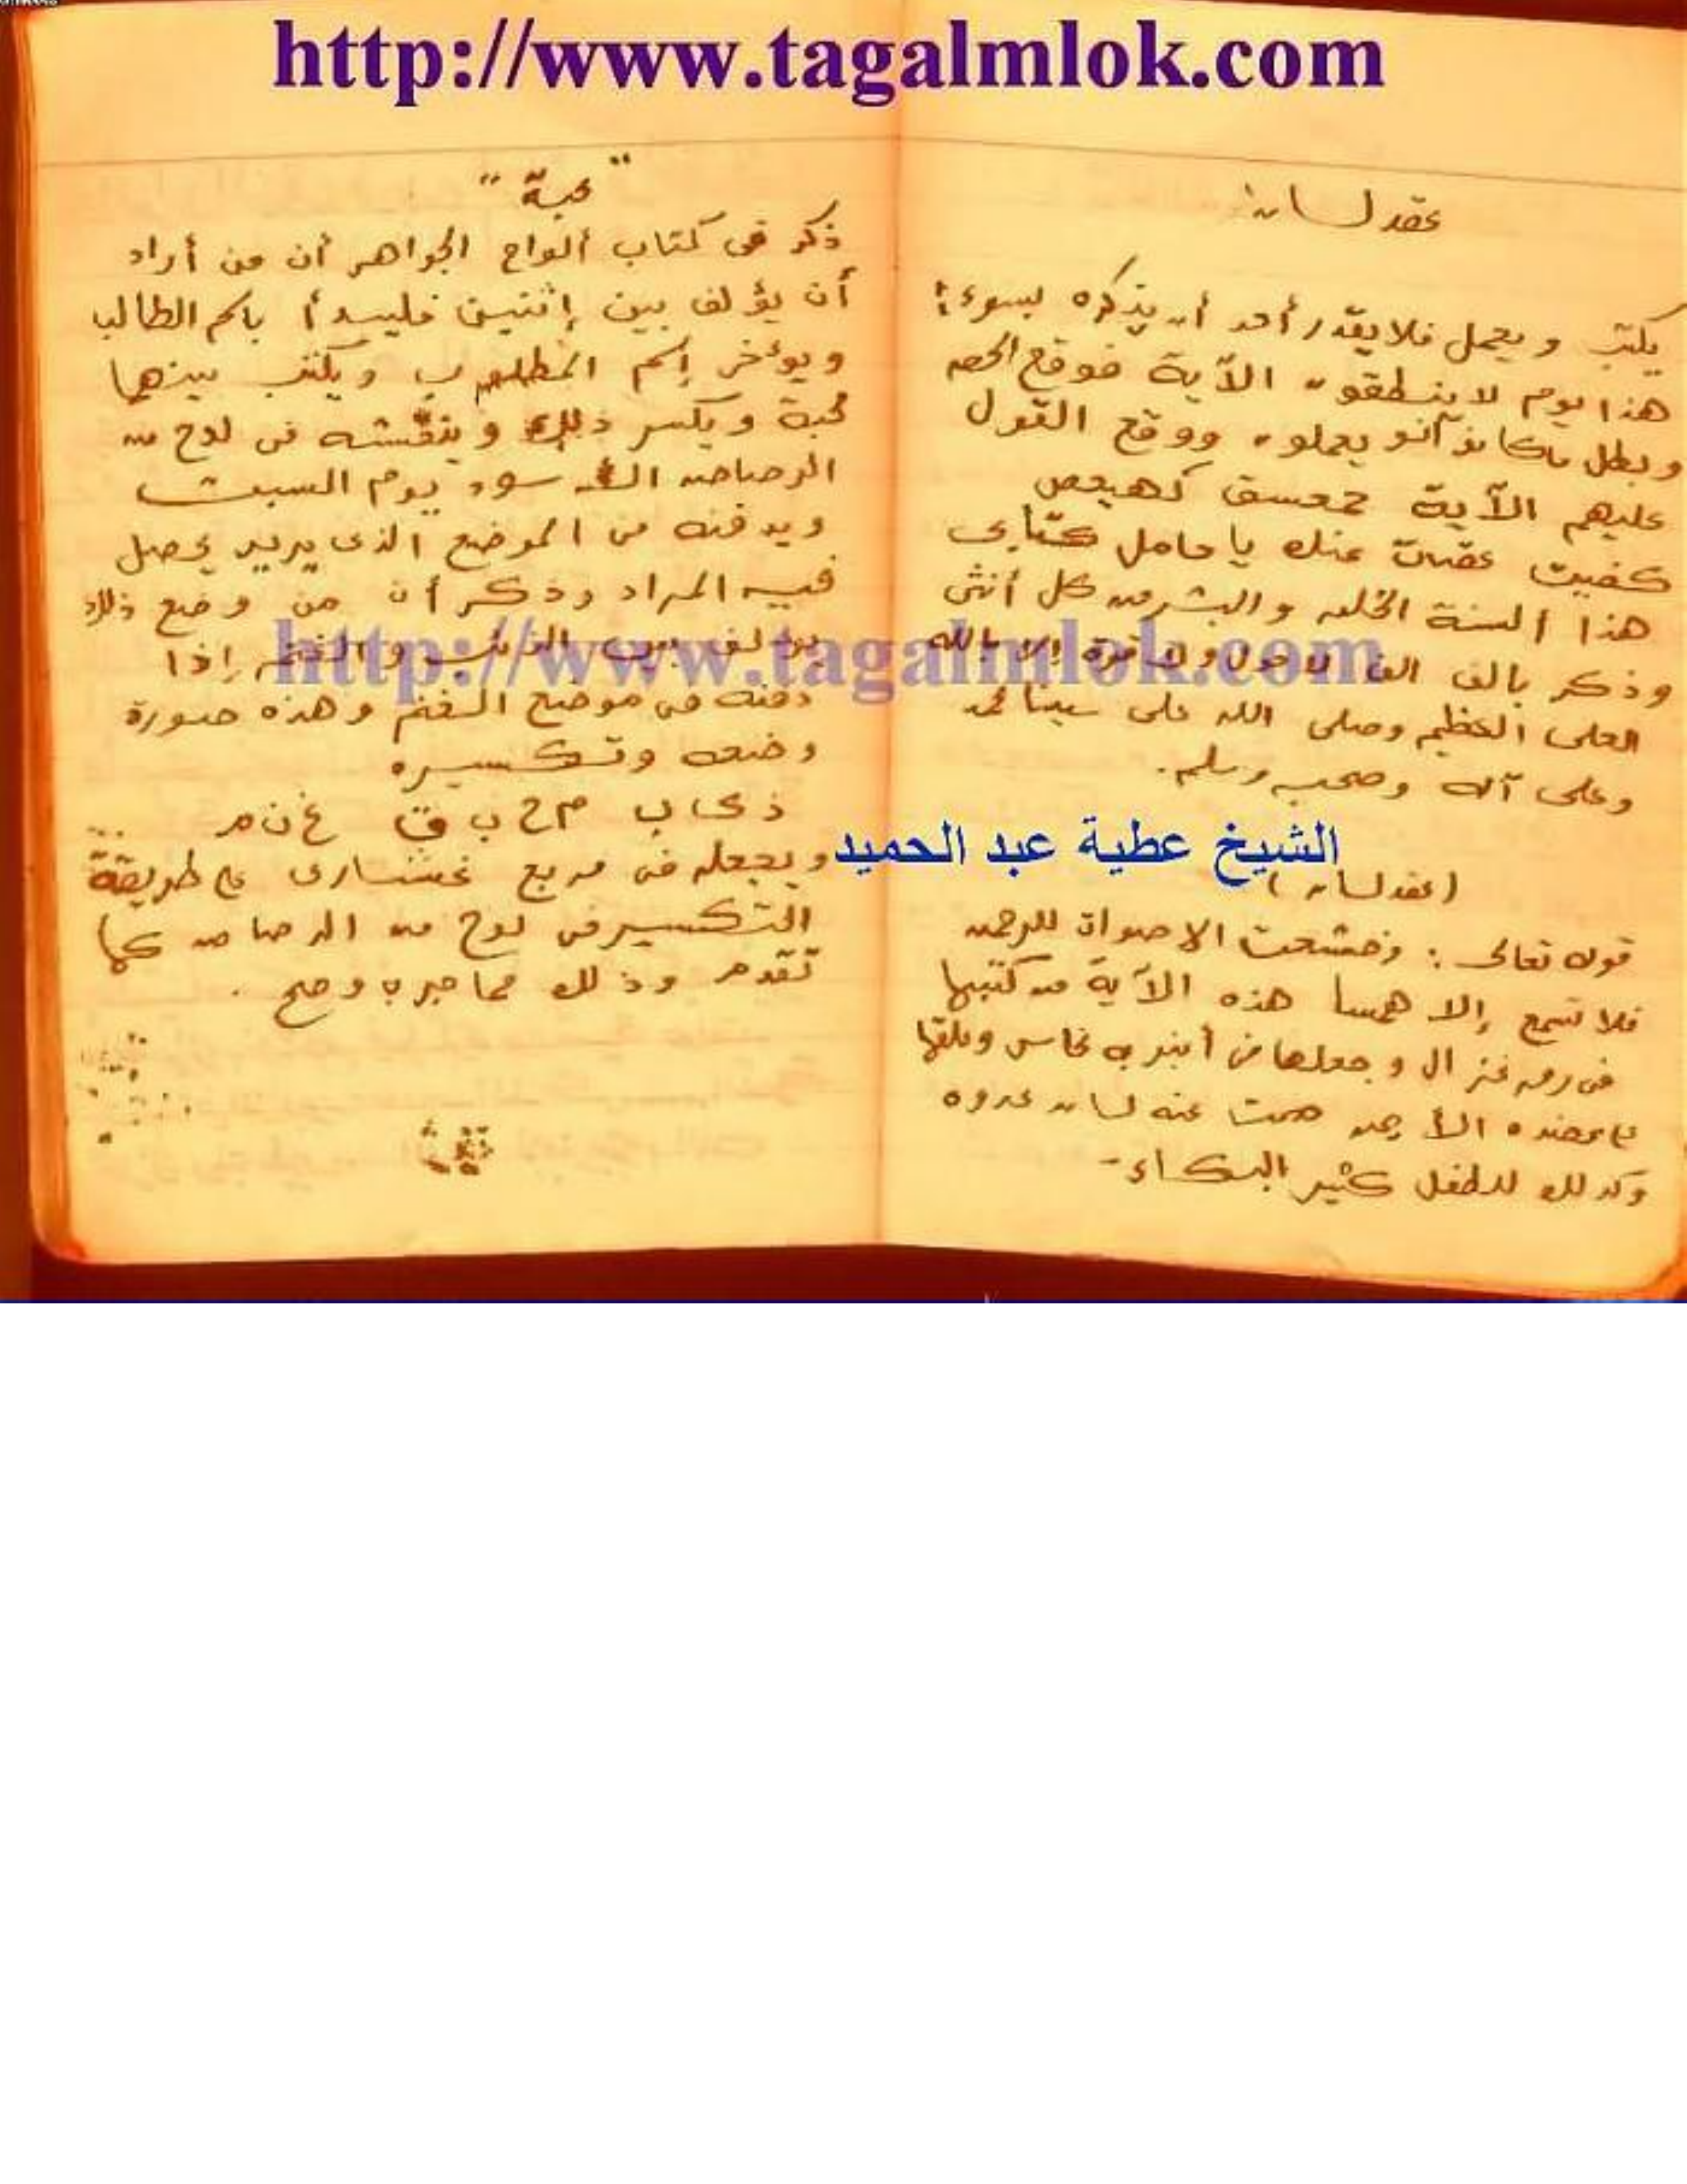 http://www.tagalmlok.com
عقد لسان
يكتب ويحمل فلا يقدر أحد أن يذكره بسوء
هذا يوم لا ينطقون الآية فوقع الحق
وبطل ما كانو يعملون ووقع القول
عليهم الآية حمعسق كهيعص
كفيت عقدت عنك يا حامل كتابى
هذا ألسنة الخلق والبشر من كل أنثى
وذكر بالف الف لا حول ولا قوة إلا بالله
العلى العظيم وصلى الله على سيدنا محمد
وعلى آله وصحبه وسلم.
الشيخ عطية عبد الحميد
(عقد لسان)
قوله تعالى : وخشعت الاصوات للرحمن
فلا تسمع إلا همسا هذه الآية من كتبها
فى رق غزال وجعلها فى أنبوبه نحاس وعلقها
على عضده الأيمن صمت عنه لسان عدوه
وكذلك للطفل كثير البكاء -
"محبة"
ذكر فى كتاب ألواح الجواهر أن من أراد
أن يؤلف بين إثنين فليبدأ باسم الطالب
ويوءخر إسم المطلوب ويكتب بينهما
محبة ويكسر ذلك وينقشه فى لوح من
الرصاص الأسود يوم السبت
ويدفنه فى الموضع الذى يريد يحصل
فيه المراد وذكر أن من وضع ذلك
يؤلف بين الذئب والغنم إذا
http://www.tagalmlok.com
دفنه فى موضع الغنم وهذه صورة
وضعه وتكسيره
ذ ى ا ب م ح ب ة غ ن م
ويجعله فى مربع عشارى على طريقة
التكسير فى لوح من الرصاص كما
تقدم وذلك مما جرب وصح .